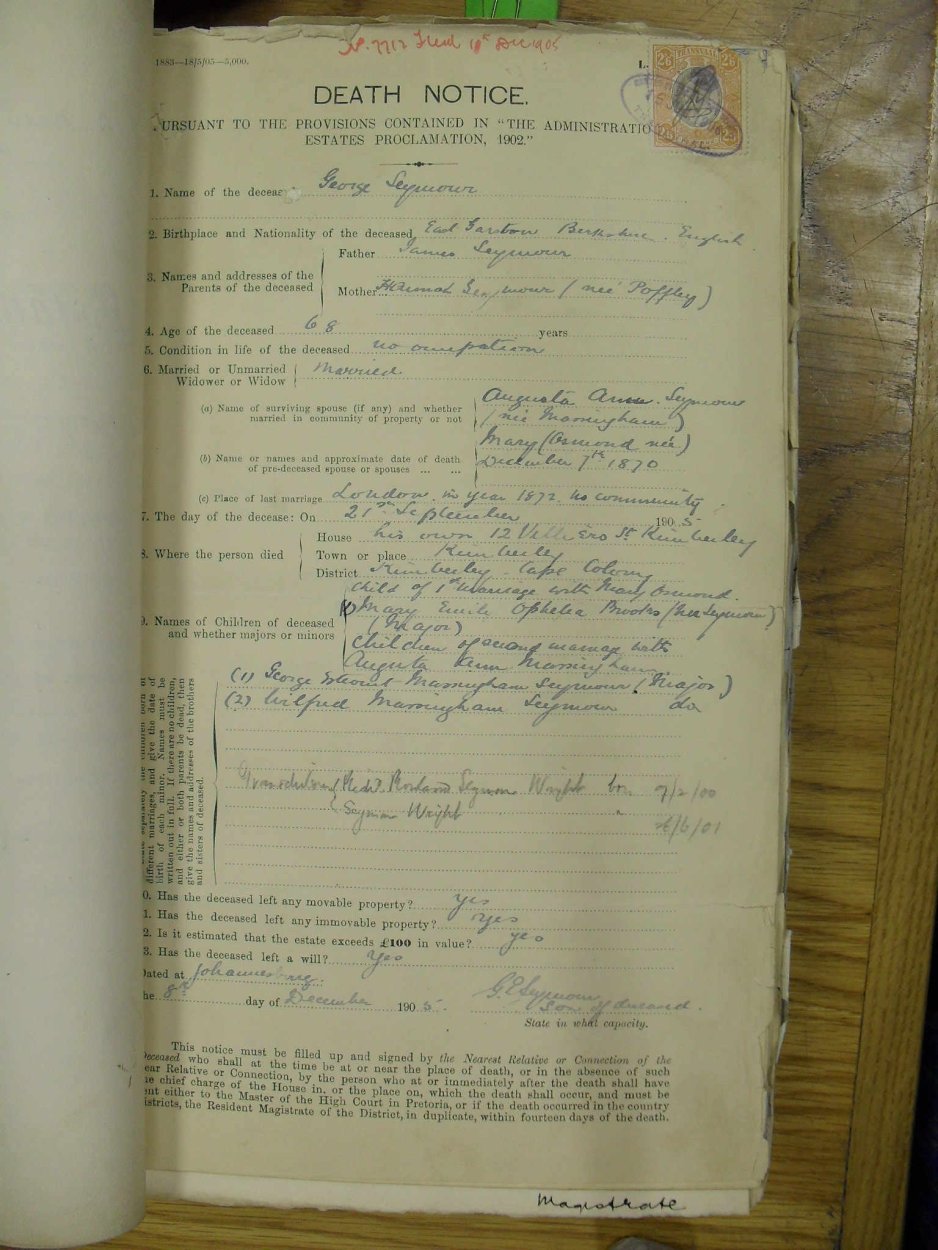 No. 7712 Filed 11th Dec 1905
1883—18/5/05—5,000.
L.
TRANSVAAL
2/6 2/6
DEATH NOTICE.
PURSUANT TO THE PROVISIONS CONTAINED IN "THE ADMINISTRATIO
ESTATES PROCLAMATION, 1902."
1. Name of the deceas George Seymour
2. Birthplace and Nationality of the deceased East Garston Berkshire. English
Father James Seymour
3. Names and addresses of the
Parents of the deceased
Mother Hannah Seymour (neé Poffley)
4. Age of the deceased 68 years
5. Condition in life of the deceased no occupation
6. Married or Unmarried
Widower or Widow Married
(a) Name of surviving spouse (if any) and whether
married in community of property or not
Augusta Ann Seymour
(neé Massingham)
(b) Name or names and approximate date of death
of pre-deceased spouse or spouses ... ...
Mary (Osmond neé)
December 7th 1870
(c) Place of last marriage London in year 1872 no community
7. The day of the decease: On 21st September 1905
House his own 12 St Kimberley
8. Where the person died
Town or place Kimberley
District Kimberley Cape Colony
9. Names of Children of deceased
and whether majors or minors
Child of 1st marriage with Mary Osmond.
(1) Mary Emily Ophelia Brooks (neé Seymour)
(Major)
Children of second marriage with
Augusta Ann Massingham
(1) George Massingham Seymour (Major)
(2) Wilfred Massingham Seymour do
different marriages, and give the date of
birth of each minor. Names must be
written out in full. If there are no children,
and either or both parents be dead, then
give the names and addresses of the brothers
and sisters of deceased.
Grandchildren Rowland Seymour Wright born 9/2/00
Seymour Wright " /6/01
0. Has the deceased left any movable property? yes
1. Has the deceased left any immovable property? yes
2. Is it estimated that the estate exceeds £100 in value? yes
3. Has the deceased left a will? Yes
Dated at Johannesburg.
he 8th day of December 1905.
G E Seymour
Son of deceased.
State in what capacity.
This notice must be filled up and signed by the Nearest Relative or Connection of the
Deceased who shall at the time be at or near the place of death, or in the absence of such
ear Relative or Connection, by the person who at or immediately after the death shall have
he chief charge of the House in, or the place on, which the death shall occur, and must be
ent either to the Master of the High Court in Pretoria, or if the death occurred in the country
istricts, the Resident Magistrate of the District, in duplicate, within fourteen days of the death.
Magistrate